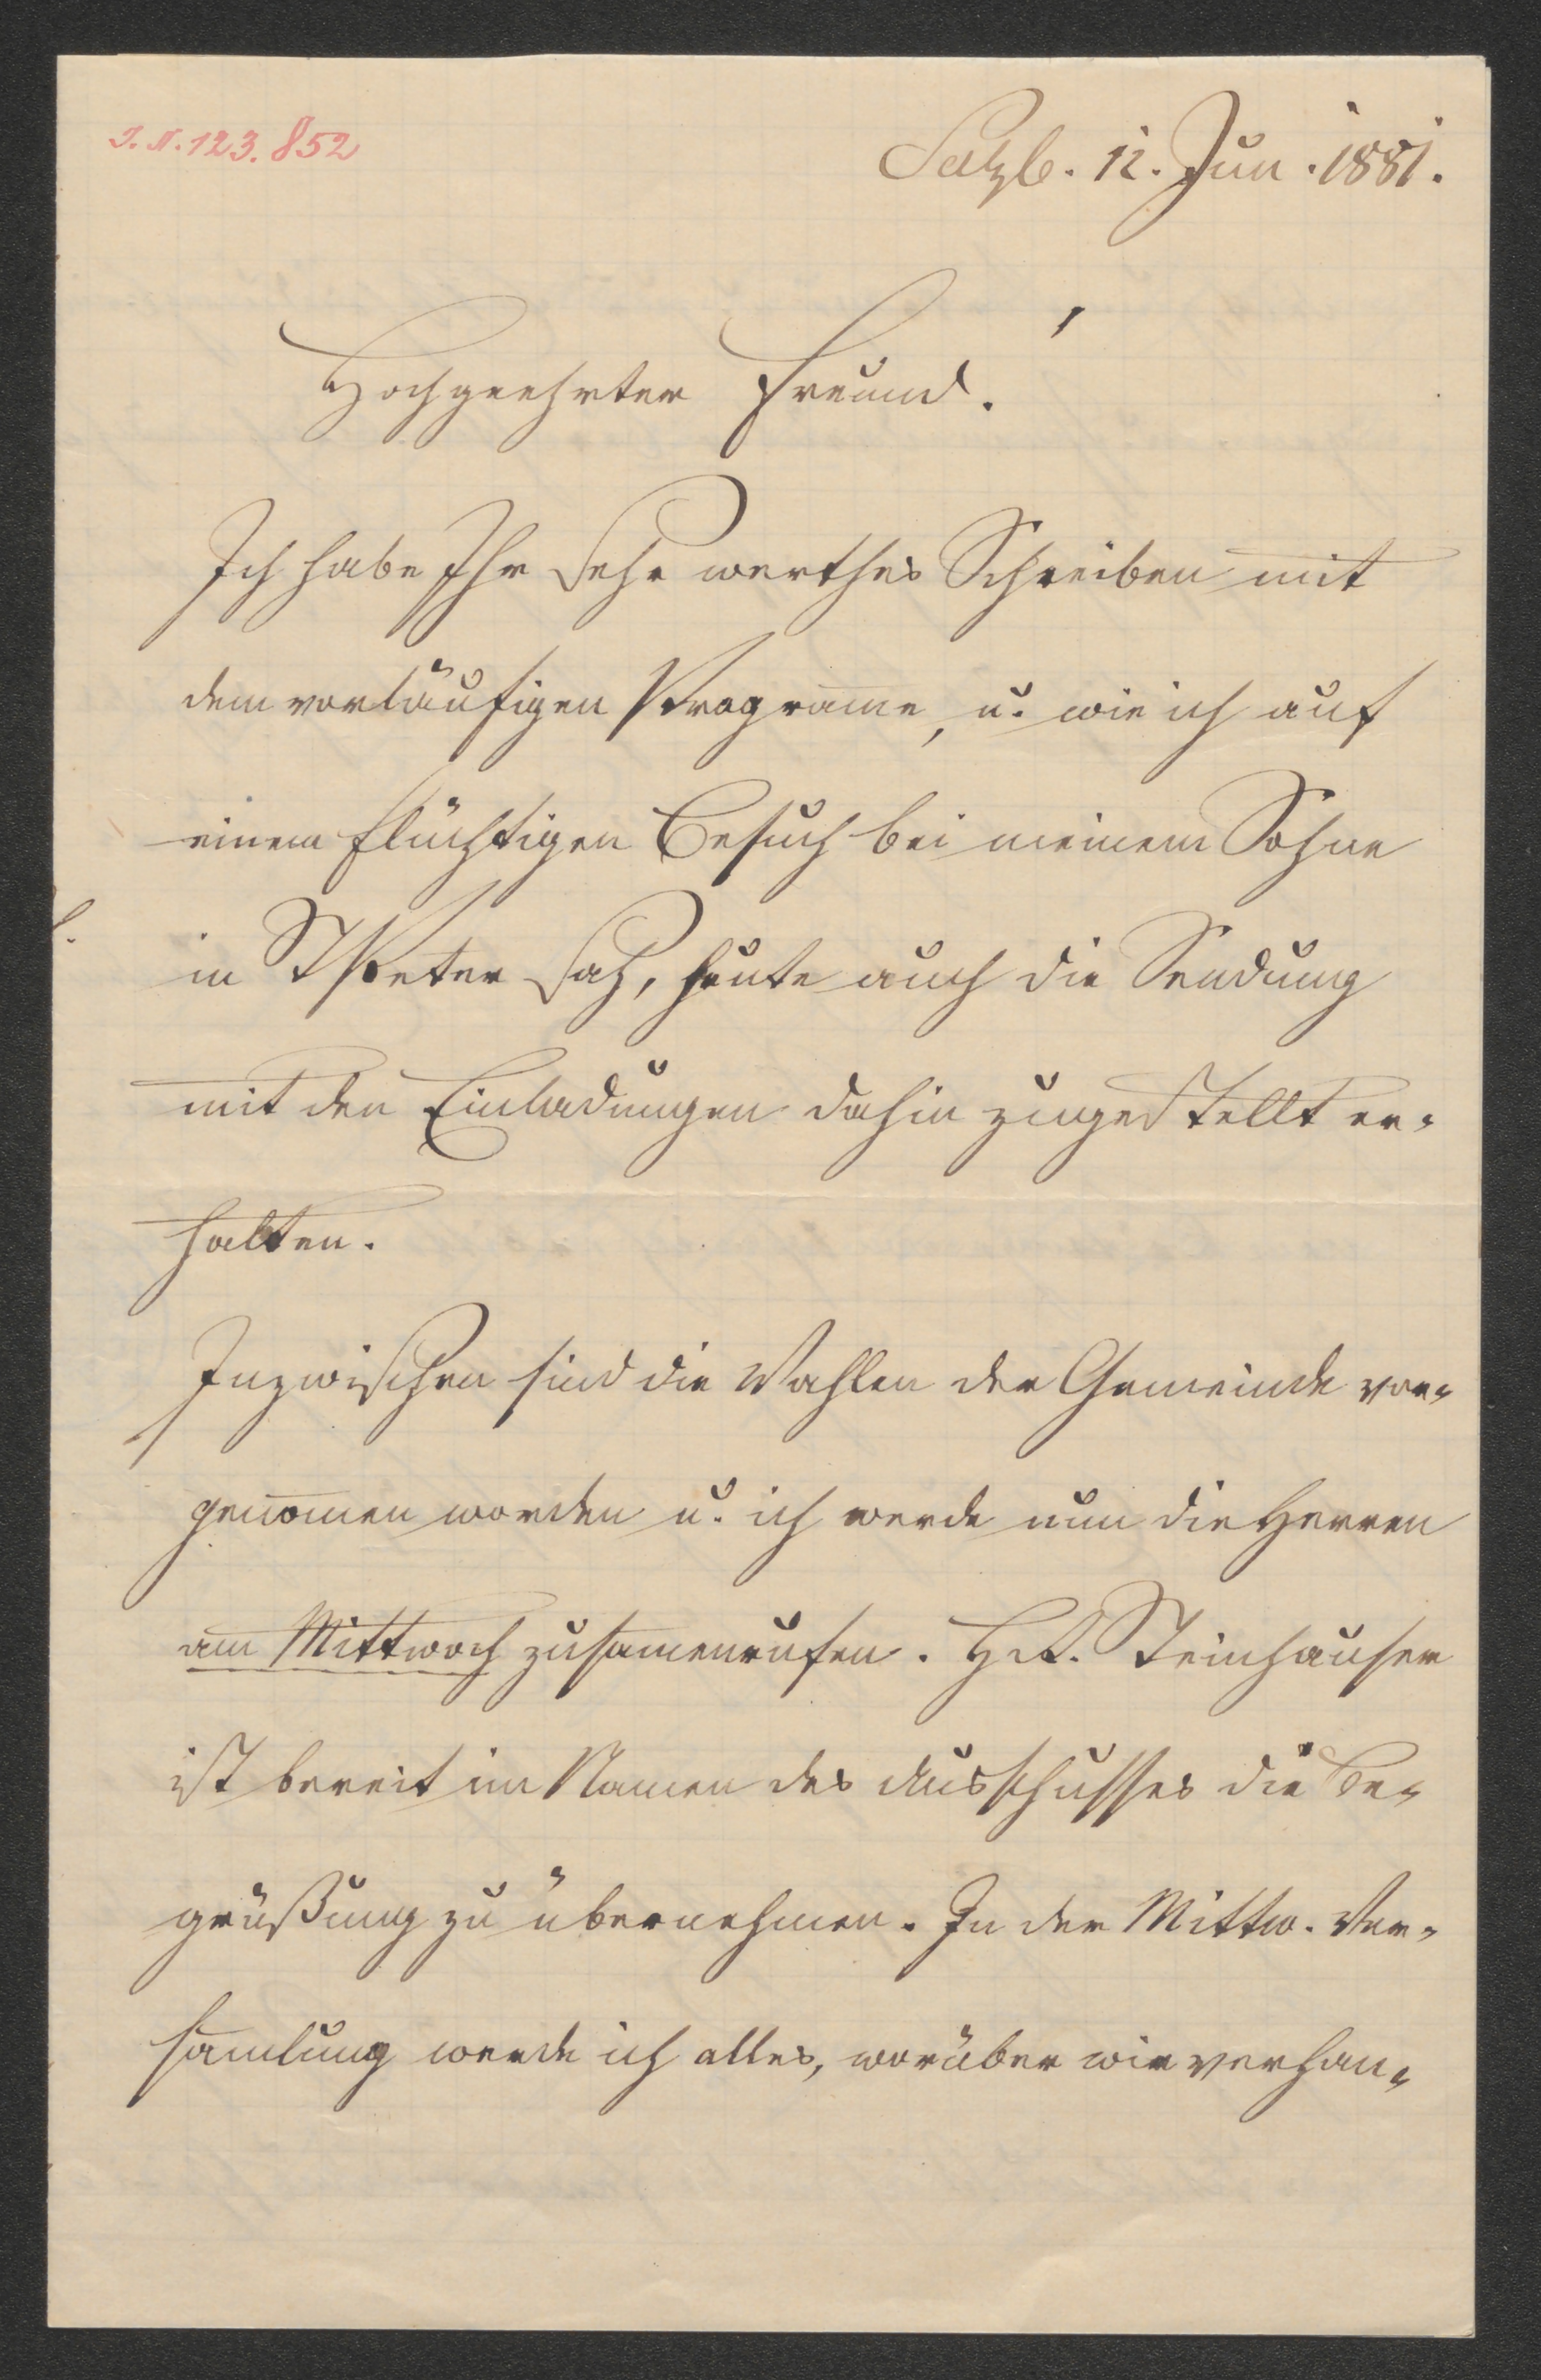 I. N. 123.852
Salzb. 12. Jun. 1881.
Hochgeehrter Freund!
Ich habe Ihr sehr werthes Schreiben mit
dem vorläufigen Programe, u. wie ich auf
einem flüchtigen Besuch bei meinem Sohne
in St Peter sah, heute auch die Sendung
mit den Einladungen dahin zugestellt er-
halten.
Inzwischen sind die Wahlen der Gemeinde vor-
genomen worden u. ich werde nun die Herren
am Mittwoch zusamenrufen. Steinhauser
ist bereit im Namen des Ausschusses die Be-
grüßung zu übernehmen. In der Mittw. Ver-
samlung werde ich alles, worüber wir verhan-